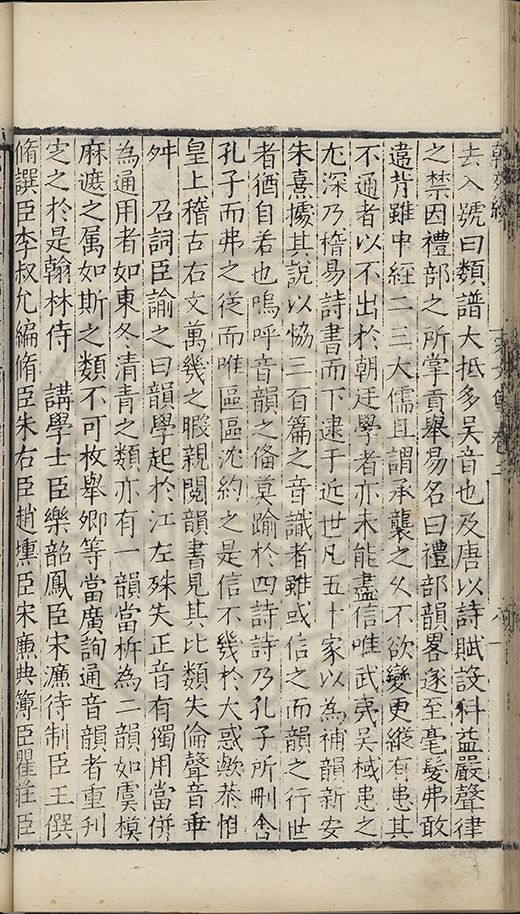 去入號曰類譜大抵多吳音也及唐以詩賦設科益嚴聲律
之禁因禮部之所掌貢舉易名曰禮部韻畧遂至毫髮弗敢
違背雖中經二三大儒且謂承襲之乆不欲變更縱有患其
不通者以不出於朝廷學者亦未能盡信唯武夷吳棫患之
尤深乃稽易詩書而下逮于近世凡五十家以為補韻新安
朱熹據其說以恊三百篇之音識者雖或信之而韻之行世
者猶自若也嗚呼音韻之偹莫踰於四詩詩乃孔子所刪舍
孔子而弗之從而唯區區沈約之是信不幾於大惑歟恭惟
皇上稽古右文萬幾之暇親閱韻書見其比類失倫聲音乖
舛 召詞臣諭之曰韻學起於江左殊失正音有獨用當併
為通用者如東冬清青之類亦有一韻當析為二韻如虞模
麻遮之属如斯之類不可枚舉卿等當廣詢通音韻者重刋
定之於是翰林侍 講學士臣樂韶鳳臣宋濂待制臣王僎
脩譔臣李叔允編脩臣朱右臣趙壎臣宋廉典簿臣瞿莊臣